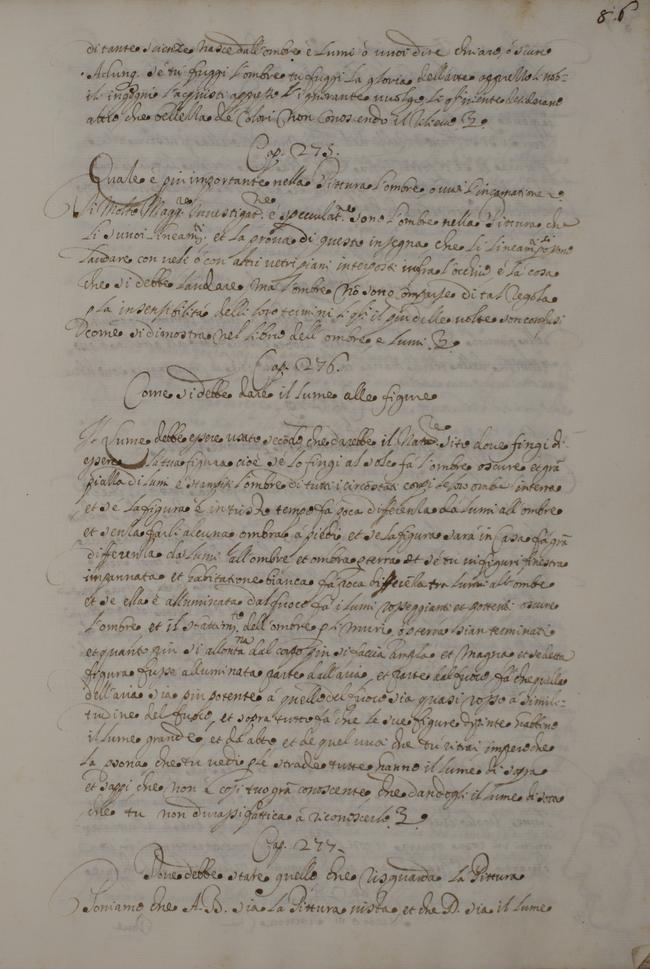 86
di tante scienze nasce dall'ombre e lumi ò vuoi dire chiaro, ò scuro
Adunq. se tù fuggi l'ombre tu fuggi la gloria dell'arte appresso li nob-
ili ingegni e l'acquisti appresso l'ignorante vuolgo, li quali niente desiderano
altro che bellezza de colori non conoscendo il rilievo
Cap. 275.
Quale è piu importante nella Pittura l'ombre ò vuoi l'incarnatione
Di molto magg.re investigat.ne e speculat.ne sono l'ombre nella Pittura che
li suoi lineam.ti, et la prova di questo insegna che li lineam.ti si pono
laudare con veli ò con altri vetri piani interposti infra l'occhio e la cosa
che si debbe laudare ma l'ombre nō sono comprese di tal regola
p la insensibilità delli loro termini li q.li il piu delle volte son confusi
come si dimostra nel libro dell'ombre e lumi
Cap. 276.
Come si debbe dare il lume alle figure
Il lume debbe essere usato secōdo che darebbe il nat.re sito dove fingi di
essere la tua figura cioè se lo fingi al sole fà l'ombre oscure et grā
piazza di lumi e stampisi l'ombre di tutti i circostāti corpi in terra
et se la figura è in tristo tempo fà poca differenza da lumi all'ombre
et senza farli alcuna ombra à piedi, et se la figura sarà in casa fà grā
differenza da lumi all'ombre et ombra p terra et se tù vi figuri finestra
impannata et habitatione bianca fà poca differēza tra lumi all'ombre
et se ella è alluminata dal fuoco fà i lumi rosseggianti et potenti oscure
l'ombre et il sbattim.to dell'ombre p i muri, ò p terra sian terminati
et quanto piu si allontana dal corpo piu si faccia ampla et magna et se detta
figura fusse alluminata parte dall'aria, et parte dal fuoco fà che quella
dell'aria sia piu potente à quello del fuoco sia quasi rosso à simili-
tudine del fuoco, et sopra tutto fà che le tue figure dipinte habbino
il lume grande, et da alto et de quel vivo che tù ritrai imperoche
le psone che tu vedi p le strade tutte hanno il lume di sopra
et sappi che non è cosi tuo grā conoscente che dandogli il lume di sotto
che tu non durassi fattica à riconoscerlo
Cap. 277.
Dove debbe stare quello che risguarda la Pittura
Poniamo che A.B. sia la Pittura vista, et che D. sia il lume